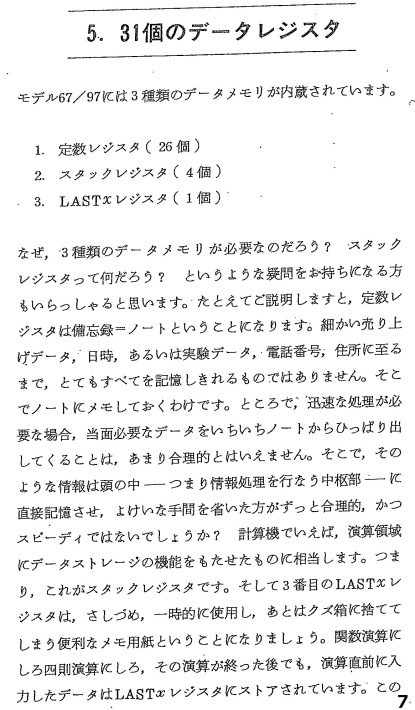 5. 31個のデータレジスタ
モデル67／97には3種類のデータメモリが内蔵されています。
1. 定数レジスタ（26個）
2. スタックレジスタ（4個）
3. LASTxレジスタ（1個）
なぜ，3種類のデータメモリが必要なのだろう？ スタック
レジスタって何だろう？ というような疑問をお持ちになる方
もいらっしゃると思います。たとえてご説明しますと，定数レ
ジスタは備忘録＝ノートということになります。細かい売り上
げデータ，日時，あるいは実験データ，電話番号，住所に至る
まで，とてもすべてを記憶しきれるものではありません。そこ
でノートにメモしておくわけです。ところで，迅速な処理が必
要な場合，当面必要なデータをいちいちノートからひっぱり出
してくることは，あまり合理的とはいえません。そこで，その
ような情報は頭の中 ── つまり情報処理を行なう中枢部 ── に
直接記憶させ，よけいな手間を省いた方がずっと合理的，かつ
スピーディではないでしょうか？ 計算機でいえば，演算領域
にデータストレージの機能をもたせたものに相当します。つま
り，これがスタックレジスタです。そして3番目のLASTxレ
ジスタは，さしづめ，一時的に使用し，あとはクズ箱に捨てて
しまう便利なメモ用紙ということになりましょう。関数演算に
しろ四則演算にしろ，その演算が終った後でも，演算直前に入
力したデータはLASTxレジスタにストアされています。この
7